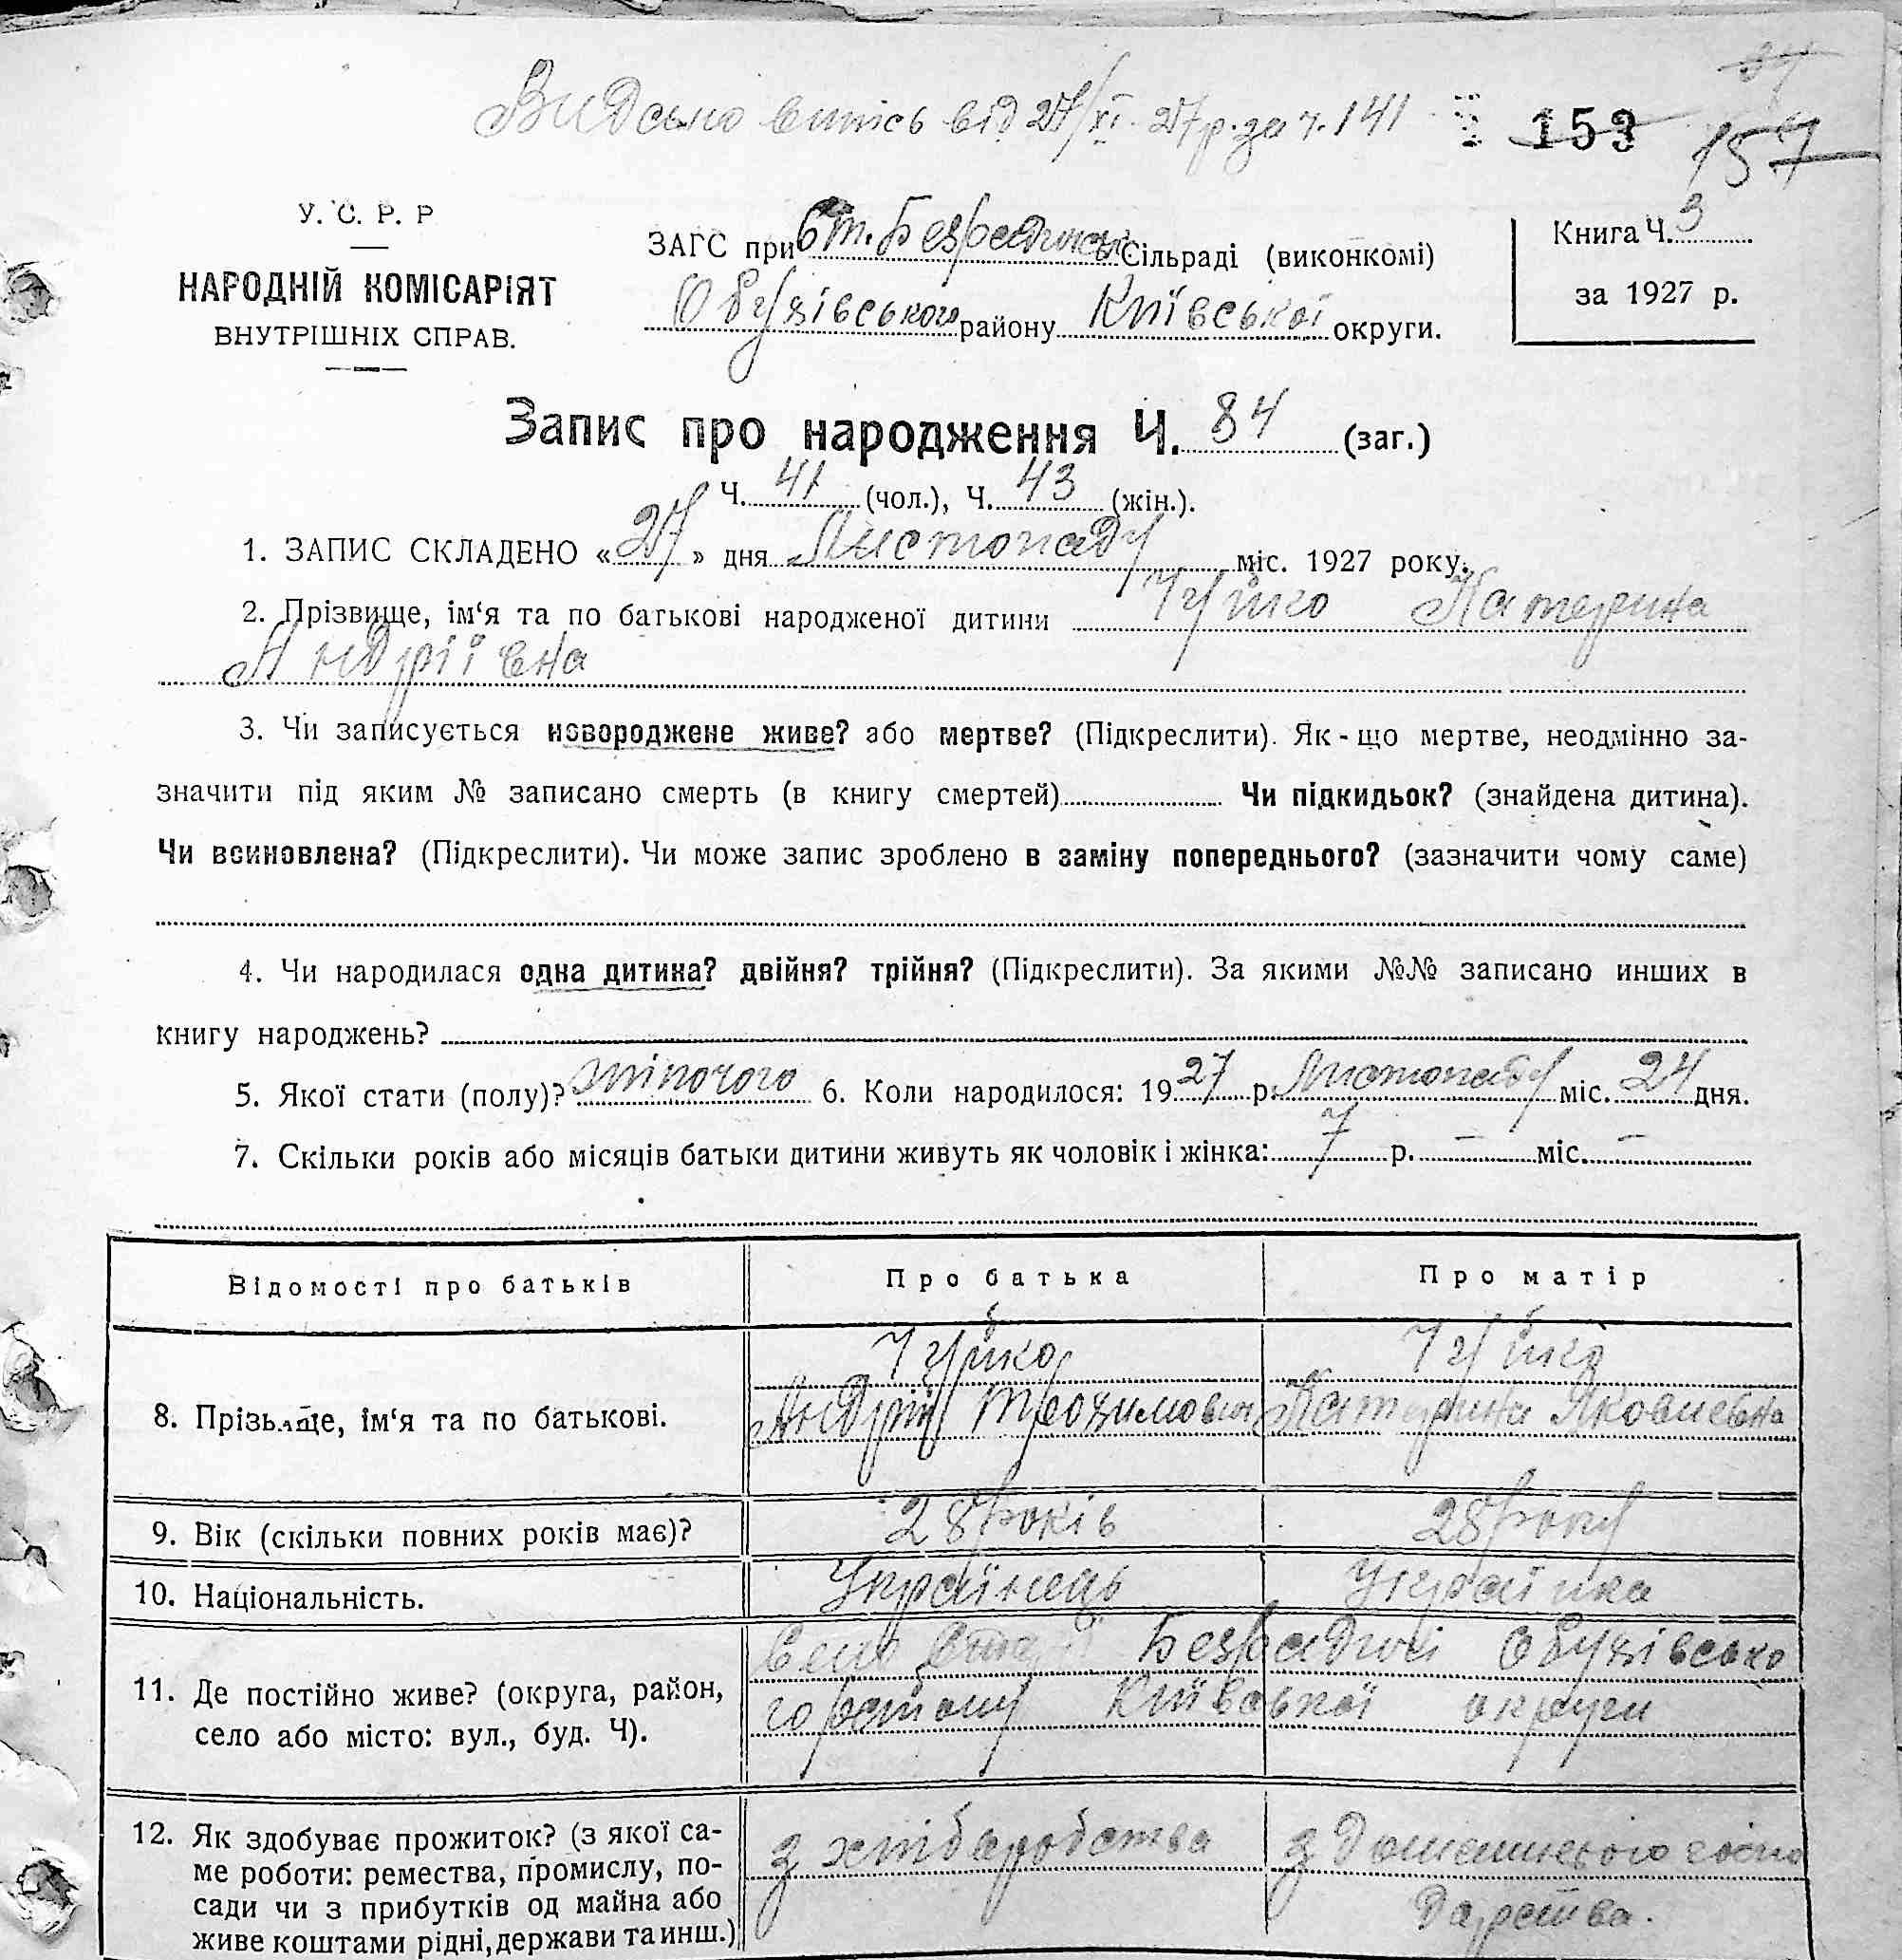 Видсьно випісь від 27/XI-27р. за ч. 141
153 157
У. С. Р. Р
НАРОДНІЙ КОМІСАРІЯТ
ВНУТРІШНІХ СПРАВ.
ЗАГС при Ст. Безрадичськ Сільраді (виконкомі)
Обухівського району Київської округи.
Книга Ч. 3
за 1927 р.
Запис про народження Ч. 84 (заг.)
Ч. 41 (чол.), Ч. 43 (жін.).
1. ЗАПИС СКЛАДЕНО «27» дня Листопаду міс. 1927 року.
2. Прізвище, ім‘я та по батькові народженої дитини Чуйко Катерина
Андріівна
3. Чи записується новороджене живе? або мертве? (Підкреслити). Як-що мертве, неодмінно за-
значити під яким № записано смерть (в книгу смертей) Чи підкидьок? (знайдена дитина).
Чи всиновлена? (Підкреслити). Чи може запис зроблено в заміну попереднього? (зазначити чому саме)
4. Чи народилася одна дитина? двійня? трійня? (Підкреслити). За якими №№ записано инших в
книгу народжень?
5. Якої стати (полу)? жіночого 6. Коли народилося: 1927 р. Листопаду міс. 24 дня.
7. Скільки років або місяців батьки дитини живуть як чоловік і жінка: 7 р. — міс. —
Відомості про батьків Про батька Про матір
8. Прізвище, ім‘я та по батькові.
Чуйко Чуйко
Андрій Катерина Яковлевна
9. Вік (скільки повних років має)? 28 років 28 року
10. Національність. Українець Українка
11. Де постійно живе? (округа, район,
село або місто: вул., буд. Ч).
Село Безрадичі Обухівсько
го району Київської округи
12. Як здобуває прожиток? (з якої са-
ме роботи: ремества, промислу, по-
сади чи з прибутків од майна або
живе коштами рідні, держави та инш.)
з хліборобства з домашнього госпо
дарства.